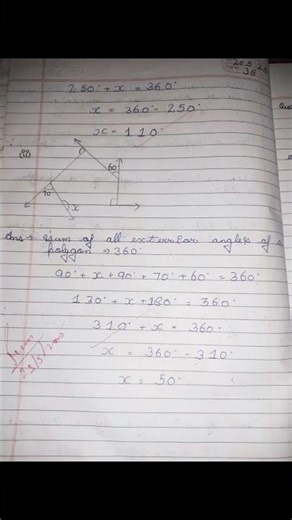 250° + x = 360°
x = 360° - 250°
x = 110°
(ii)
60°
70°
x
Ans → Sum of all exterior angles of a
polygon = 360°
90° + x + 90° + 70° + 60° = 360°
130° + x + 180° = 360°
310° + x = 360°
x = 360° - 310°
x = 50°